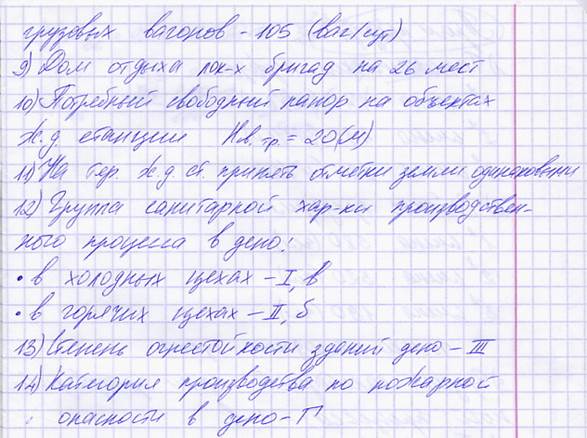 грузовых вагонов - 105 (ваг/сут)
9) Дом отдыха лок-х бригад на 26 мест
10) Потребный свободный напор на объектах
ж.д. станции Нв.тр. = 20(м)
11) На тер. ж.д. ст. принять отметки земли одинаковыми
12) Группа санитарной хар-ки производствен-
ного процесса в депо:
• в холодных цехах - I, в
• в горячих цехах - II, б
13) Степень огнестойкости зданий депо - III
14) Категория производства по пожарной
опасности в депо - Г